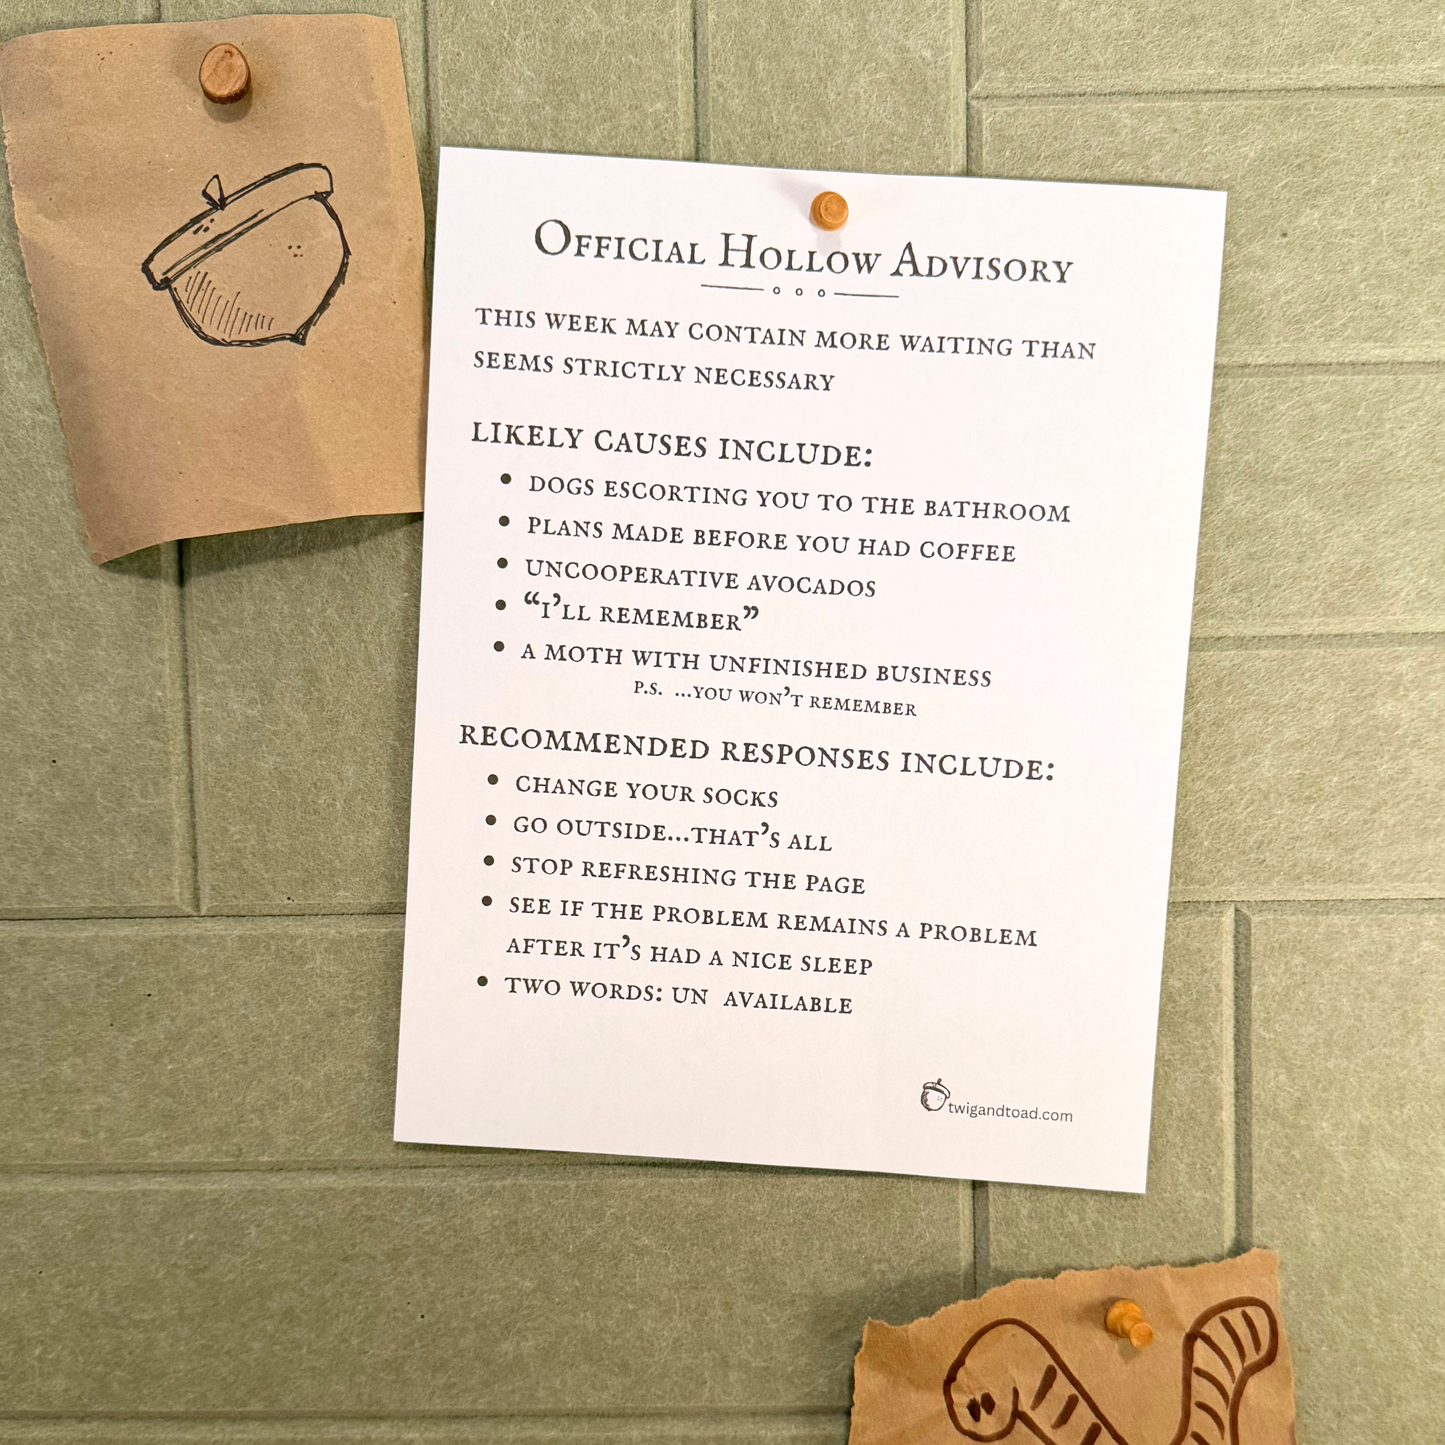 Official Hollow Advisory
THIS WEEK MAY CONTAIN MORE WAITING THAN
SEEMS STRICTLY NECESSARY
LIKELY CAUSES INCLUDE:
• DOGS ESCORTING YOU TO THE BATHROOM
• PLANS MADE BEFORE YOU HAD COFFEE
• UNCOOPERATIVE AVOCADOS
• “I’LL REMEMBER”
• A MOTH WITH UNFINISHED BUSINESS
P.S. ...YOU WON’T REMEMBER
RECOMMENDED RESPONSES INCLUDE:
• CHANGE YOUR SOCKS
• GO OUTSIDE...THAT’S ALL
• STOP REFRESHING THE PAGE
• SEE IF THE PROBLEM REMAINS A PROBLEM
AFTER IT’S HAD A NICE SLEEP
• TWO WORDS: UN  AVAILABLE
twigandtoad.com